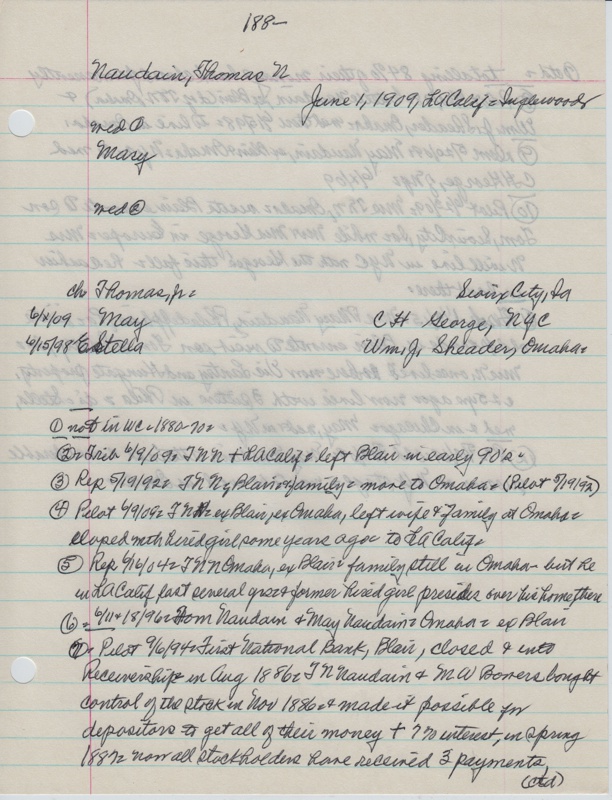 188-
Naudain, Thomas N
June 1, 1909, LA Calif = Inglewood
med ①
Mary
med ②
ch Thomas, jr = Sioux City, Ia
6/x/09 May C H George, NYC
6/15/98 Estella Wm, J, Sheader, Omaha =
① not in WC = 1880-70 =
② = Trib 6/9/09 = T N N + LA Calif = left Blair in early 90's =
③ Rep 5/19/92 = T N N, Blair + family = move to Omaha = (Pilot 5/19/92)
④ Pilot 6/9/09 = T N N = ex Blair, ex Omaha, left wife & family at Omaha =
eloped with hired girl some years ago to LA Calif =
⑤ Rep 6/16/04 = T N N Omaha, ex Blair = family still in Omaha - but he
in LA Calif past several yrs & former hired girl presides over his home there
⑥ = 6/11 & 18/96 = Tom Naudain & May Naudain = Omaha = ex Blair
⑦ = Pilot 9/6/94 = First National Bank, Blair, closed & into
Receivership in Aug 1886 = T N Naudain & M W Bowers bought
control of the stock in Nov 1886 = & made it possible for
depositors to get all of their money + 7% interest, in spring
1887 = now all stockholders have received 3 payments,
(ctd)